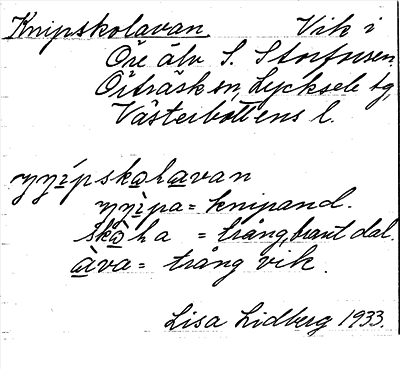 Knipskolavan. Vik i
Öre älv S. Storforsen.
Örträsk sn, Lycksele tg,
Västerbottens l.
ŋŋípskalavan
ŋŋìpa = knipand.
skàha = trång, brant dal.
àva = trång vik.
Lisa Lidberg 1933.